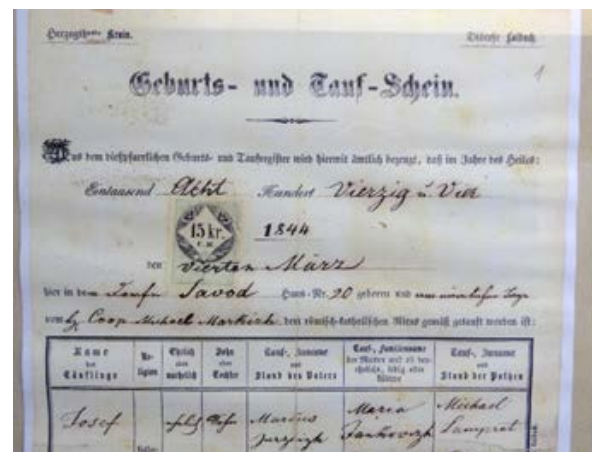 Herzogthum Krain. Diöcese Laibach
1
Geburts- und Tauf-Schein.
Aus dem dießpfarrlichen Geburts- und Taufregister wird hiermit ämtlich bezeugt, daß im Jahre des Heiles:
Eintausend Acht Hundert Vierzig u. Vier
15 kr. 1844
C. M.
den vierten März
hier in dem Savod Haus-Nr. 20 geboren und am
vom Coop Michael den römisch-katholischen Ritus gemäß getauft worden ist:
Name des Täuflings
Religion
Ehelich oder unehelich
Sohn oder Tochter
Tauf-, Zuname und Stand des Vaters
Tauf-, Familienname der Mutter
Tauf-, Zuname und Stand der Pathen
Josef Sohn Maria Michael